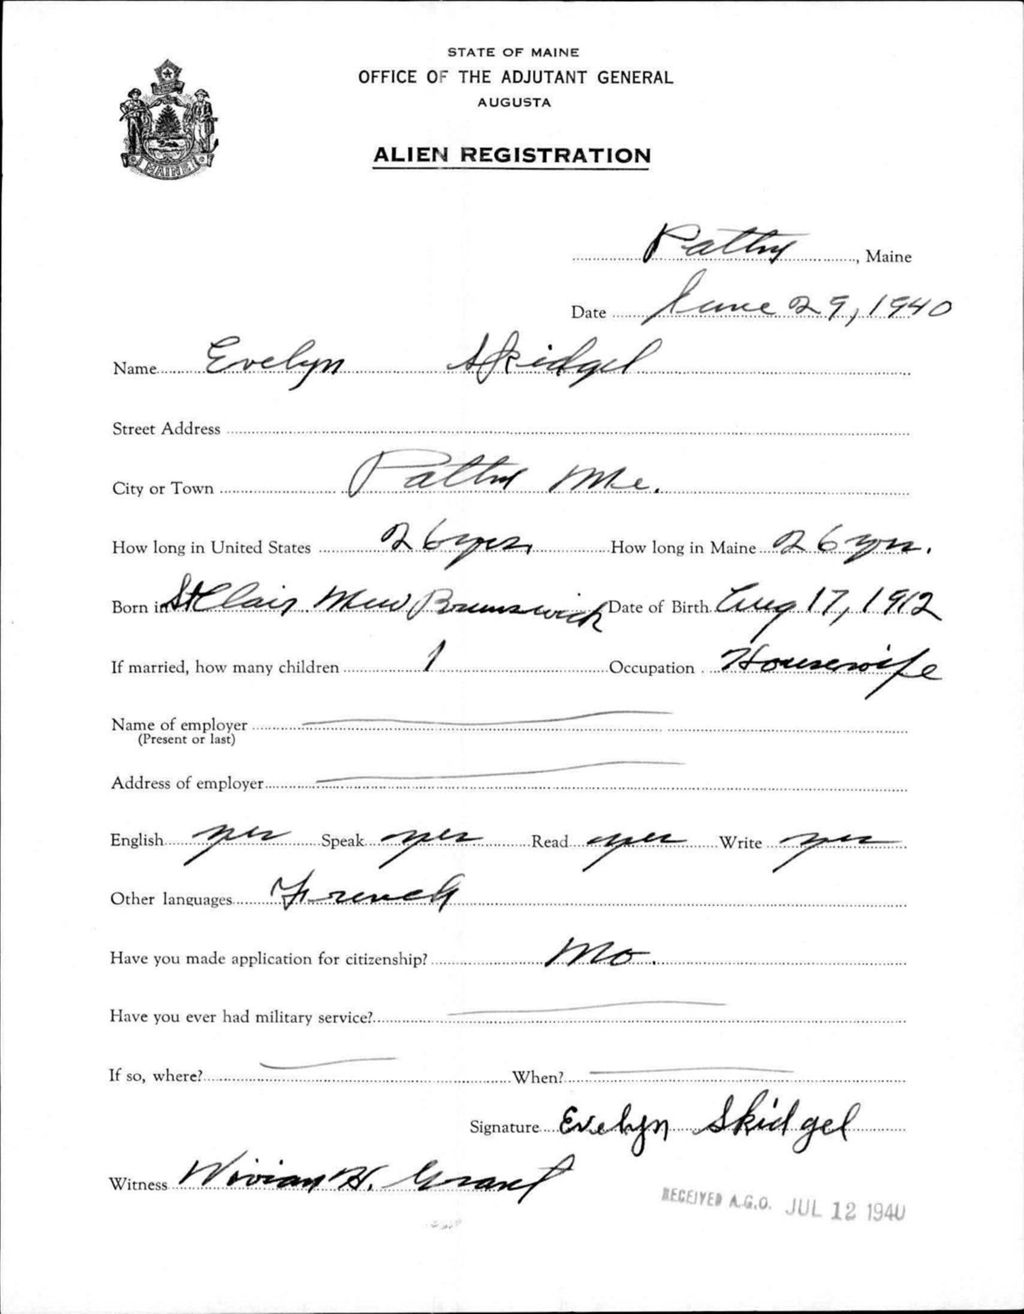 STATE OF MAINE
OFFICE OF THE ADJUTANT GENERAL
AUGUSTA
ALIEN REGISTRATION
MAINE
Patten, Maine
Date June 29, 1940
Name Evelyn Skidgel
Street Address
City or Town Patten Me.
How long in United States 26 yrs, How long in Maine 26 yrs.
Born in St Clair, New Brunswick Date of Birth Aug 17, 1912
If married, how many children 1 Occupation Housewife
Name of employer
(Present or last)
Address of employer
English yes Speak yes Read yes Write yes
Other languages French
Have you made application for citizenship? No.
Have you ever had military service?
If so, where? When?
Signature Evelyn Skidgel
Witness Vivian H. Grant
RECEIVED A.G.O. JUL 12 1940